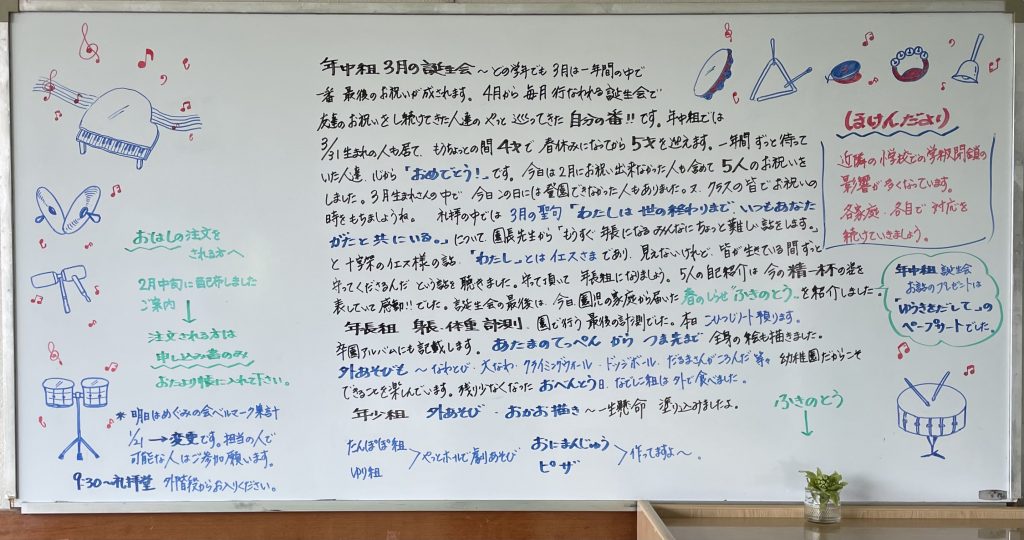 年中組 3月の誕生会 〜どの学年でも 3月は一年間の中で
一番 最後のお祝いが成されます。4月から毎月行なわれる誕生会で
友達のお祝いをし続けてきた人達のやっと巡ってきた 自分の番!!です。年中組では
3/31生まれの人も居て、もうちょっとの間4才で 春休みになってから5才を迎えます。一年間ずっと待って
いた人達、心から「おめでとう!」です。今日は2月にお祝い出来なかった人も含めて5人のお祝いを
しました。3月生まれさんの中で 今日この日には登園できなかった人もありました。又、クラスの皆でお祝いの
時をもちましょうね。 礼拝の中では 3月の聖句「わたしは世の終わりまで、いつもあなた
がたと共にいる。」について、園長先生から「もうすぐ年長になるみんなにちょっと難しい話をします。」
と十字架のイエス様の話。「わたし」とはイエスさまであり、見えないけれど、皆が生きている間ずっと
守ってくださるんだ という話を聴きました。守って頂いて 年長組になりましょう。5人の自己紹介は今の精一杯の姿を
表していて感動!!でした。誕生会の最後は、今日、園児の家庭から届いた 春のしらせ"ふきのとう"を紹介しました。
年長組 身長・体重 計測 園で行う最後の計測でした。本日 こひつじノート預ります。
卒園アルバムにも記載します。 あたまのてっぺんから つま先まで 全身の絵も描きました。
外あそびも 〜なわとび・大なわ・クライミングウォール・ドッジボール・だるまさんがころんだ 等。幼稚園だからこそ
できることを楽しんでいます。残り少なくなった おべんとう日、なでしこ組は外で食べました。
年少組 外あそび・おかお描き 〜一生懸命 塗り込みましたよ。
たんぽぽ組
ゆり組
やっとホールで劇あそび
おにまんじゅう
ピザ
作ってますよ〜。
おはしの注文を
される方へ
2月中旬に配布しました
ご案内
注文される方は
申し込み書のみ
おたより帳に入れて下さい。
*明日はめぐみの会ベルマーク集計
1/21→変更です。担当の人で
可能な人はご参加願います。
9:30〜礼拝堂 外階段からお入りください。
ほけんだより
近隣の小学校での学級閉鎖の
影響が多くなっています。
各家庭・各自で対応を
続けていきましょう。
年中組 誕生会
お話のプレゼントは
「ゆうきをだして」の
ペープサートでした。
ふきのとう